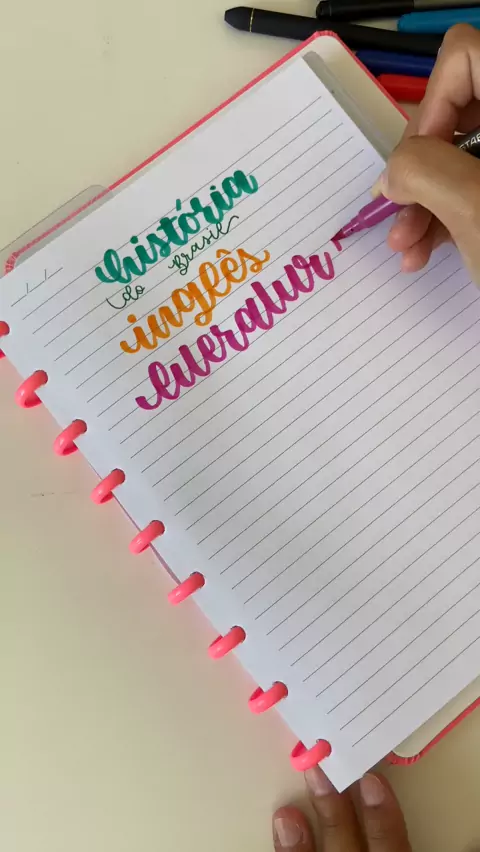 história
do Brasil
inglês
literatur